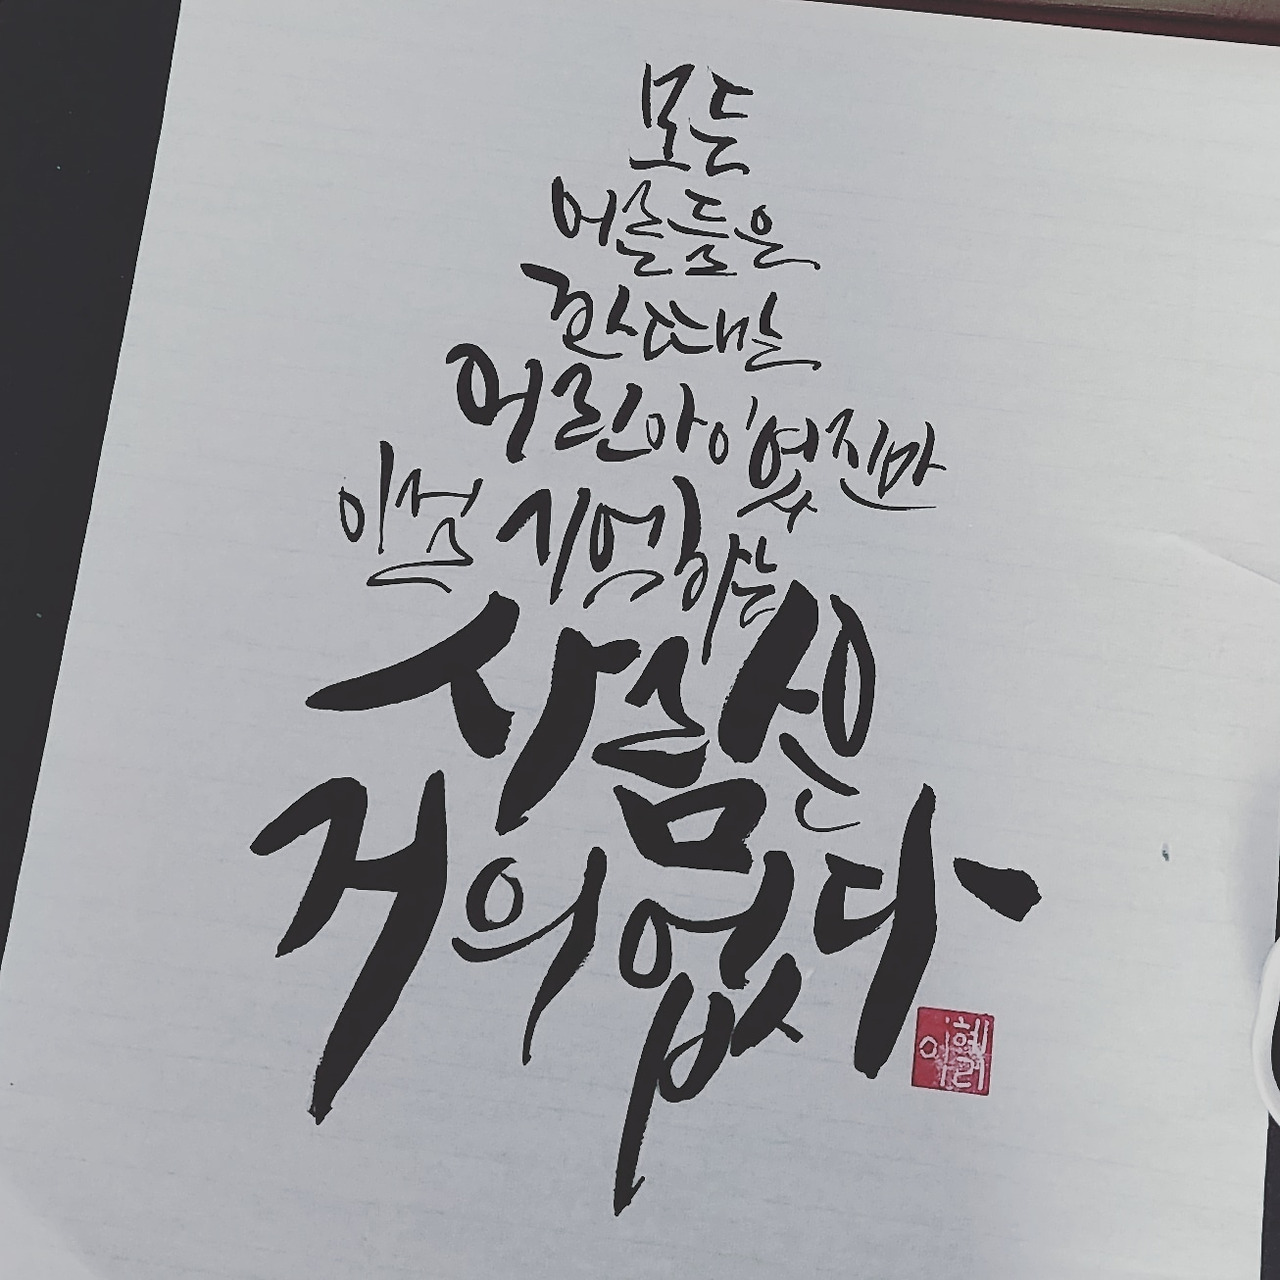 모든
어른들은
한때는
어린아이였지만
이걸 기억하는
사람은
거의 없다